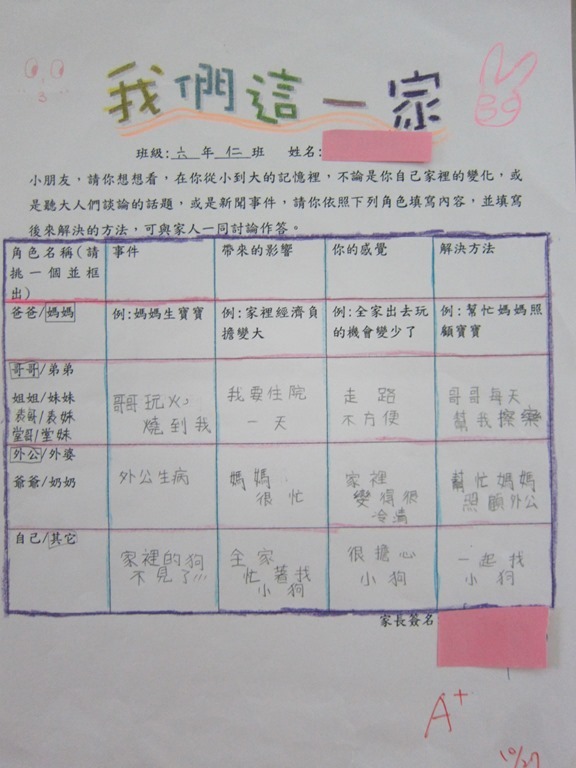 我們這一家
班級:六年仁班 姓名:
小朋友，請你想想看，在你從小到大的記憶裡，不論是你自己家裡的變化，或
是聽大人們談論的話題，或是新聞事件，請你依照下列角色填寫內容，並填寫
後來解決的方法，可與家人一同討論作答。
角色名稱(請
挑一個並框
出)
事件
帶來的影響
你的感覺
解決方法
爸爸/媽媽
例:媽媽生寶寶
例:家裡經濟負
擔變大
例:全家出去玩
的機會變少了
例:幫忙媽媽照
顧寶寶
哥哥/弟弟
姐姐/妹妹
表哥/表妹
堂哥/堂妹
哥哥玩火
燒到我
我要住院
一天
走路
不方便
哥哥每天
幫我擦藥
外公/外婆
爺爺/奶奶
外公生病
媽媽
很忙
家裡
變得很
冷清
幫忙媽媽
照顧外公
自己/其它
家裡的狗
不見了!!!
全家
忙著找
小狗
很擔心
小狗
一起找
小狗
家長簽名
A+
10/27